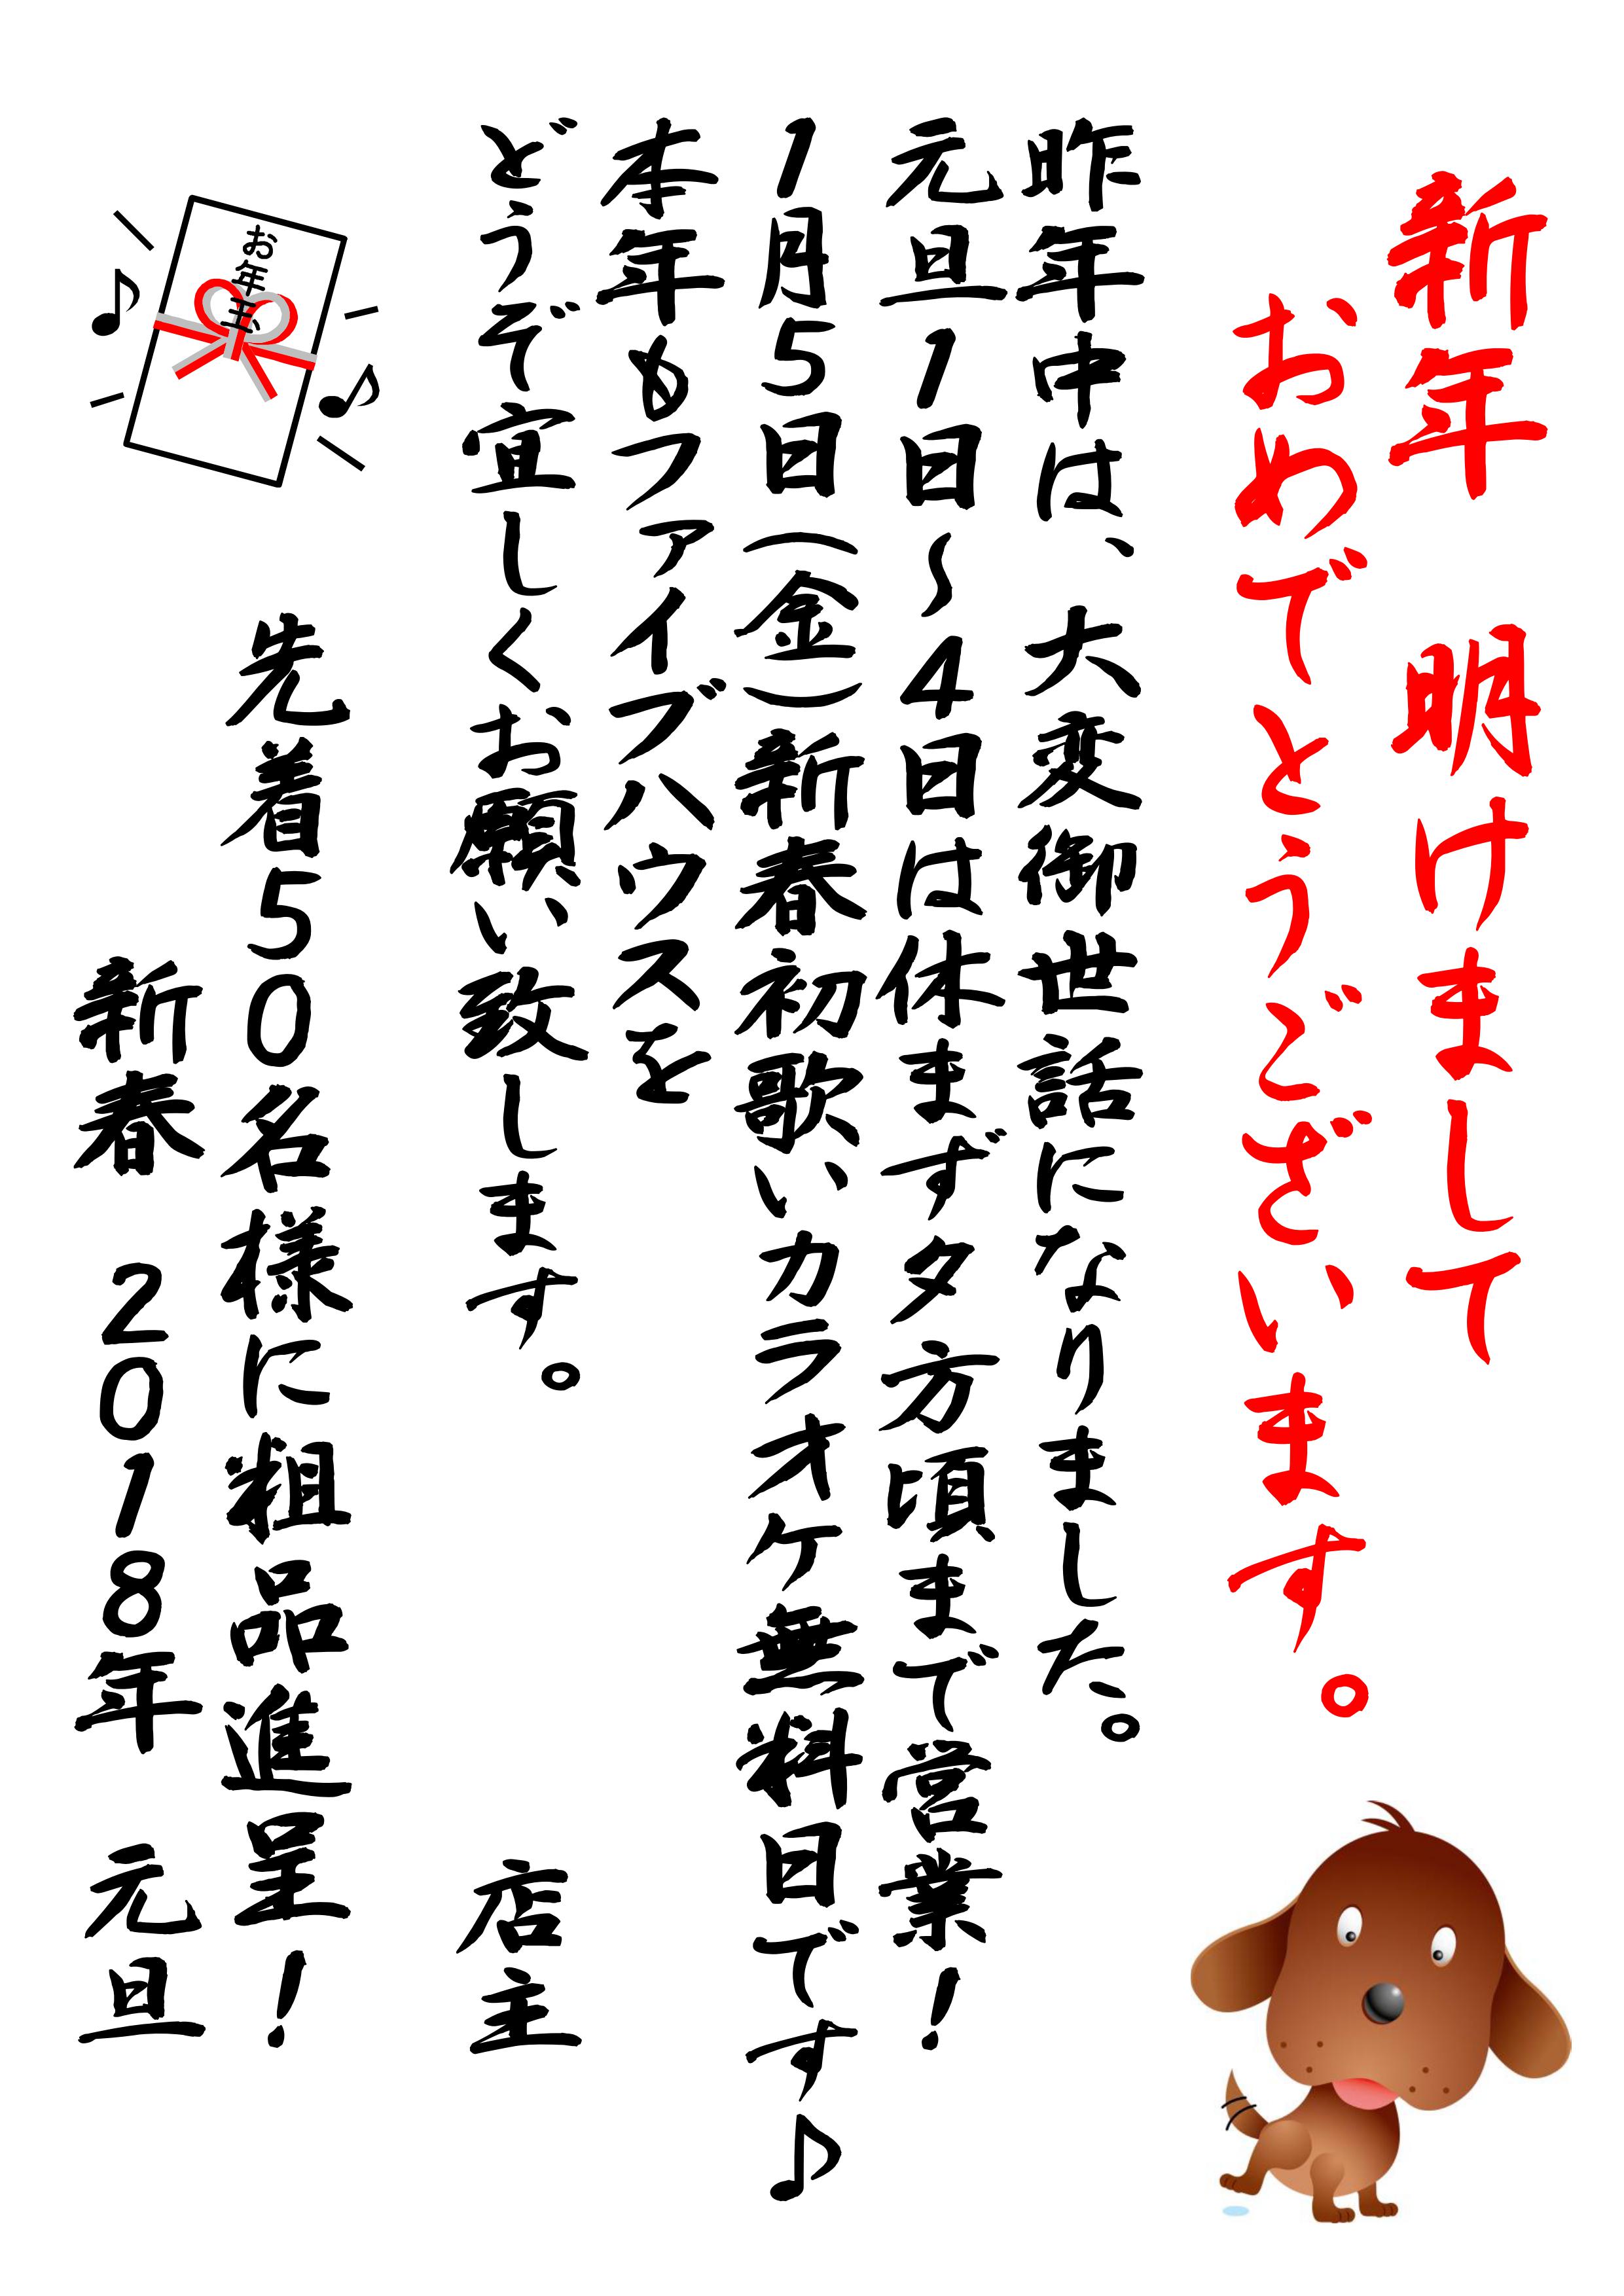 新年　明けまして
おめでとうございます。
昨年中は、大変御世話になりました。
元旦1日～4日は休まず夕方頃まで営業！
1月5日（金）新春初歌いカラオケ無料日です♪
本年もファイブハウスを
どうぞ宜しくお願い致します。　店主
お年玉
先着50名様に粗品進呈！
新春　2018年　元旦